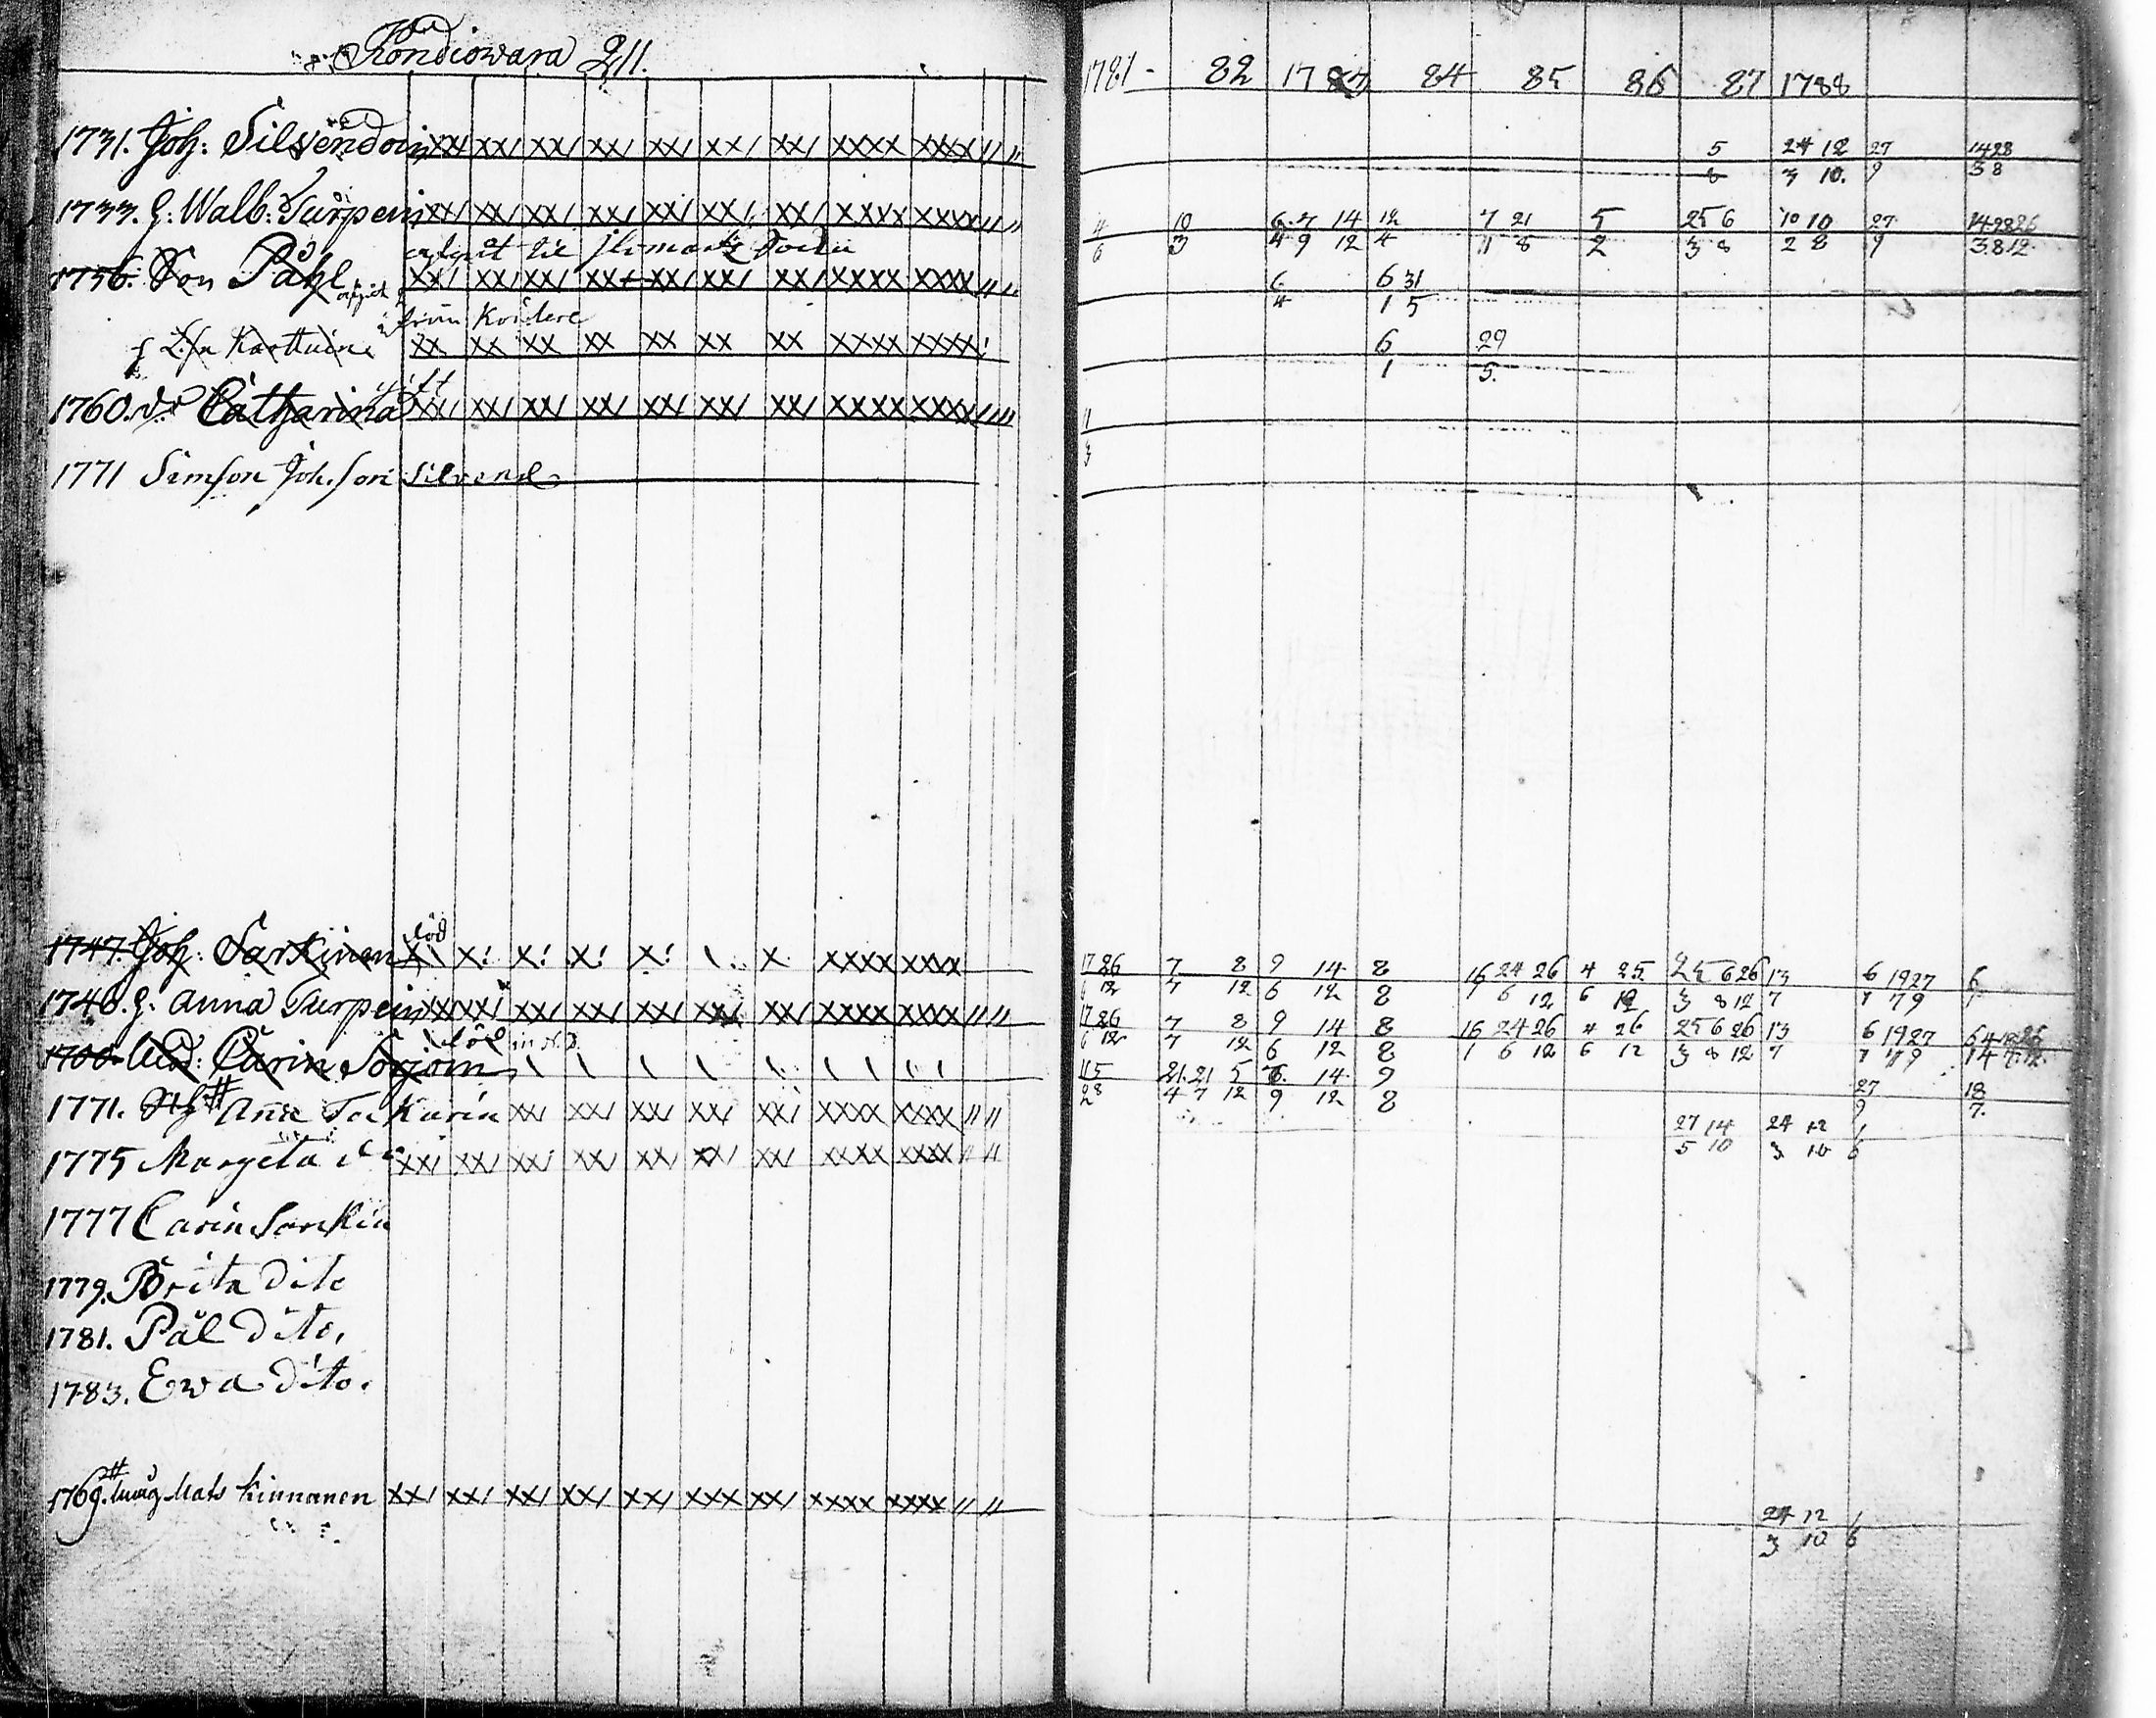 Kondiowara 211.
1781 - 82 1783 84 85 86 87 1788
1731. Joh: Silvendoin xx/ xx/ xx/ xx/ xx/ xx/ xx/ xxxx xxxx // //
5 24 12 27 14 28
8 3 10. 9 3 8
1733. H: Walb: Turpein xx/ xx/ xx/ xx/ xx/ xx/ xx/ xxxx xxxx // //
4 10 6 7 14 12 7 21 5 25 6 10 10 27 14 28 26
6 3 4 9 12 4 11 8 2 3 8 2 8 9 3 8 12
til
1756. Son Påhl xx/ xx/ xx/ xx/ xx/ xx/ xx/ xxxx xxxx // //
6 6 31
4 1 5
från
xx xx xx xx xx xx xx xxxx xxxx
6 29
1 5.
gift
1760. dr Catharina xx/ xx/ xx/ xx/ xx/ xx/ xx/ xxxx xxxx // //
11
3
1771 Simson Joh. son Silvend
död
1747. Joh: Sarkinen x! x! x! x! x! x xxxx xxxx
17 26 7 8 9 14 8 16 24 26 4 25 25 6 26 13 6 19 27 6
6 12 7 12 6 12 8 1 6 12 6 12 3 8 12 7 7 7 9 1
1746. H: Anna Turpein xx/ xx/ xx/ xx/ xx/ xx/ xx/ xxxx xxxx // //
17 26 7 8 9 14 8 16 24 26 4 26 25 6 26 13 6 19 27
6 12 7 12 6 12 8 1 6 12 6 12 3 8 12 7 7 7 9
död
1700. Carin Sorjoin
11 5 21. 21 5 6. 14 9 27 18
28 4 7 12 9 12 8 9 7.
1771. Anna Karin xx/ xx/ xx/ xx/ xx/ xxxx xxxx // //
27 14 24 12 1
5 10 3 10 6
1775 Margeta xx/ xx/ xx/ xx/ xx/ xx/ xx/ xxxx xxxx // //
1777 Carin Sarkin
1779. Brita Dito
1781. Pål Dito,
1783. Ewa dito.
1769. Mats Kinnanen xx/ xx/ xx/ xx/ xx/ xxx xx/ xxxx xxxx // //
24 12 1
3 10 6